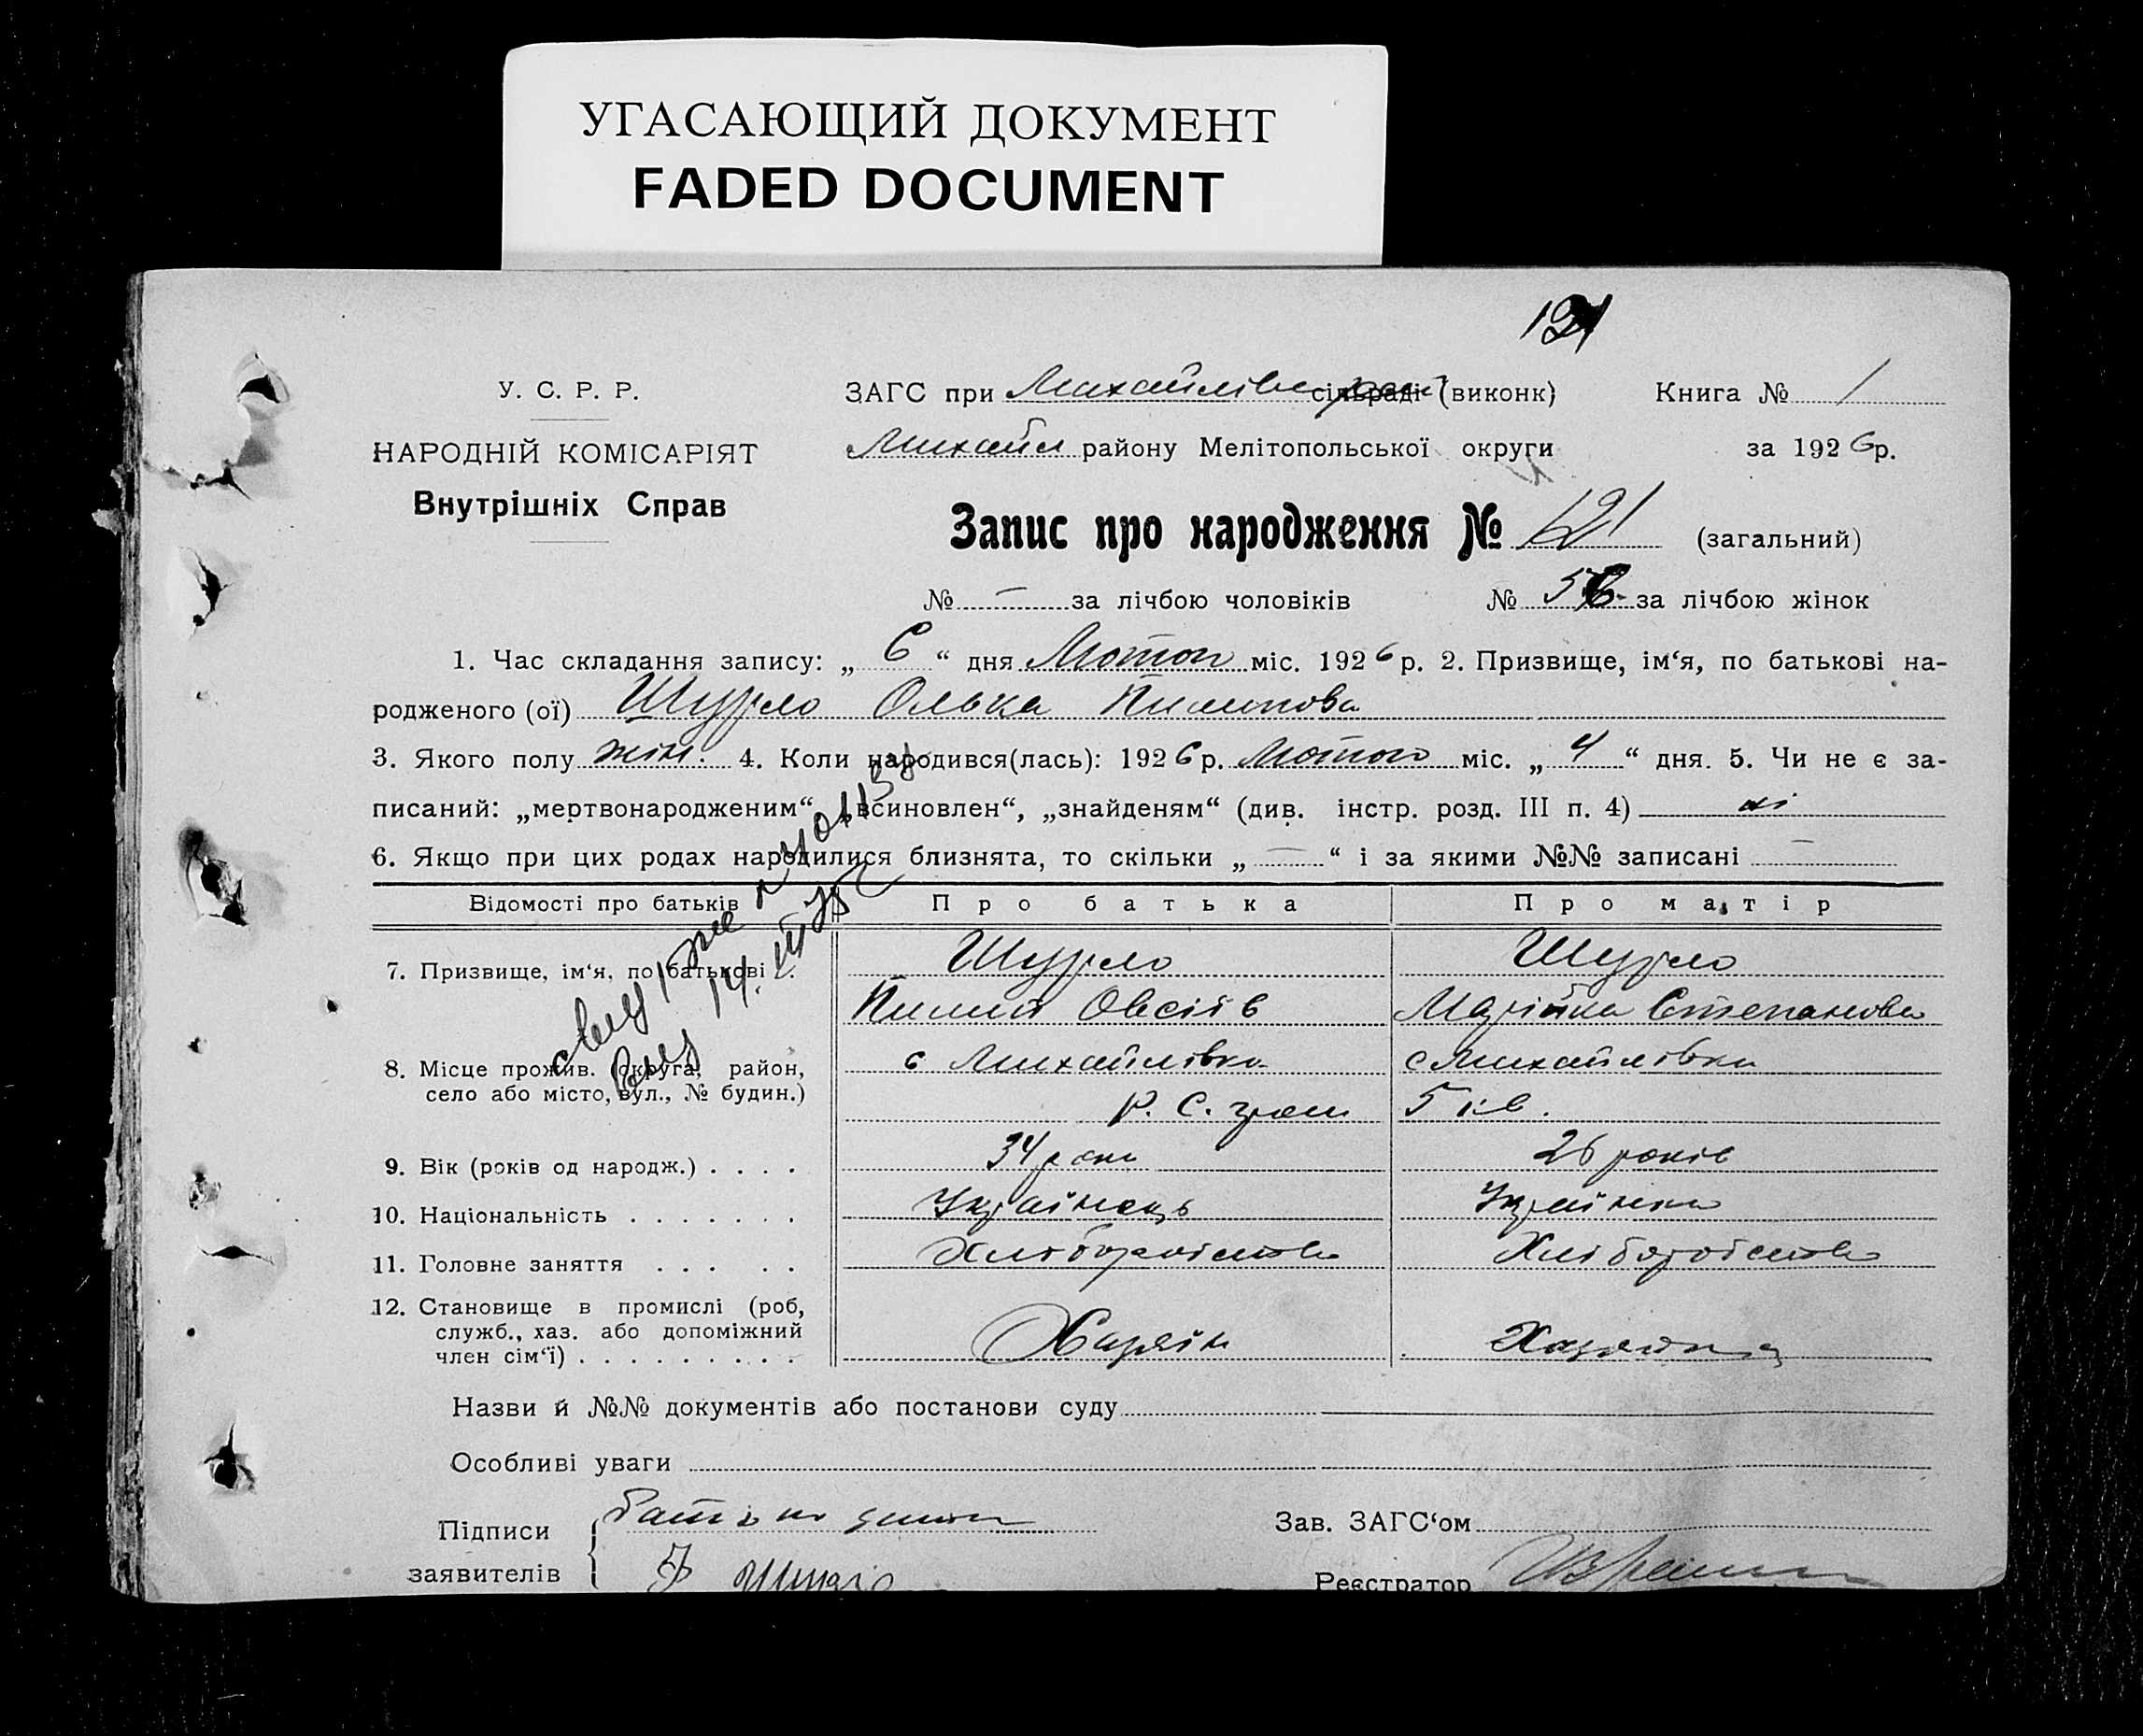 УГАСАЮЩИЙ ДОКУМЕНТ
FADED DOCUMENT
121
У. С. Р. Р.
НАРОДНІЙ КОМІСАРІЯТ
Внутрішніх Справ
ЗАГС при Михайлівс сільраді (виконк)
Книга № 1
Михайл району Мелітопольської округи
за 1926р.
Запис про народження № 121 (загальний)
№ — за лічбою чоловіків № 56 за лічбою жінок
1. Час складання запису: „ 6 “ дня Лютого міс. 1926 р. 2. Призвище, ім‘я, по батькові на-
родженого (ої) Шурло Олька Пилипова
3. Якого полу жін. 4. Коли народився(лась): 1926р. Лютого міс. „ 4 “ дня. 5. Чи не є за-
писаний: „мертвонародженим“ „всиновлен“, „знайденям“ (див. інстр. розд. III п. 4) ні
6. Якщо при цих родах народилися близнята, то скільки „ — “ і за якими №№ записані —
Відомості про батьків
Про батька
Про матір
7. Призвище, ім‘я, по батькові
Шурло
Шурло
Пилип Овсіїв
Марійка Степанова
8. Місце прожив. (округа, район,
село або місто, вул., № будин.)
с Михайлівка
с Михайлівка
Р. С. гром
5 кв.
9. Вік (років од народж.) . . . .
34 роки
26 років
10. Національність . . . . . . .
Українець
Українка
11. Головне заняття . . . . .
Хліборобство
Хліборобство
12. Становище в промислі (роб,
служб., хаз. або допоміжний
член сім‘ї) . . . . . . . . .
Хазяїн
Хазяйка
Назви й №№ документів або постанови суду
Особливі уваги
Підписи
заявителів
Зав. ЗАГС‘ом
Реєстратор